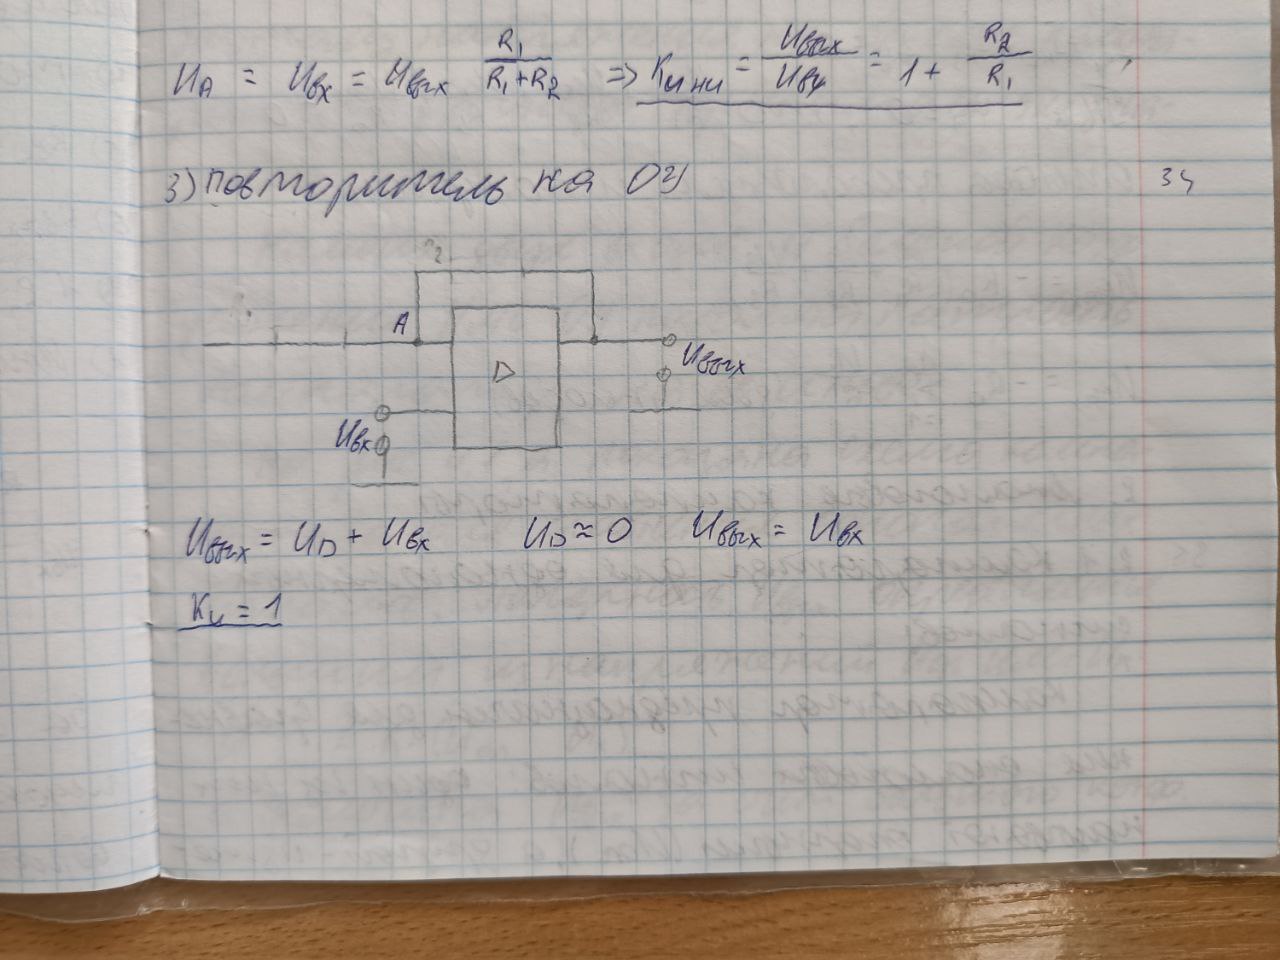 U_A = U_вх = U_вых R_1/(R_1+R_2) => K_u ни = U_вых/U_вх = 1 + R_2/R_1
3) Повторитель на ОУ
34
A
D
U_вых
U_вх
U_вых = U_D + U_вх U_D ≈ 0 U_вых = U_вх
K_u = 1